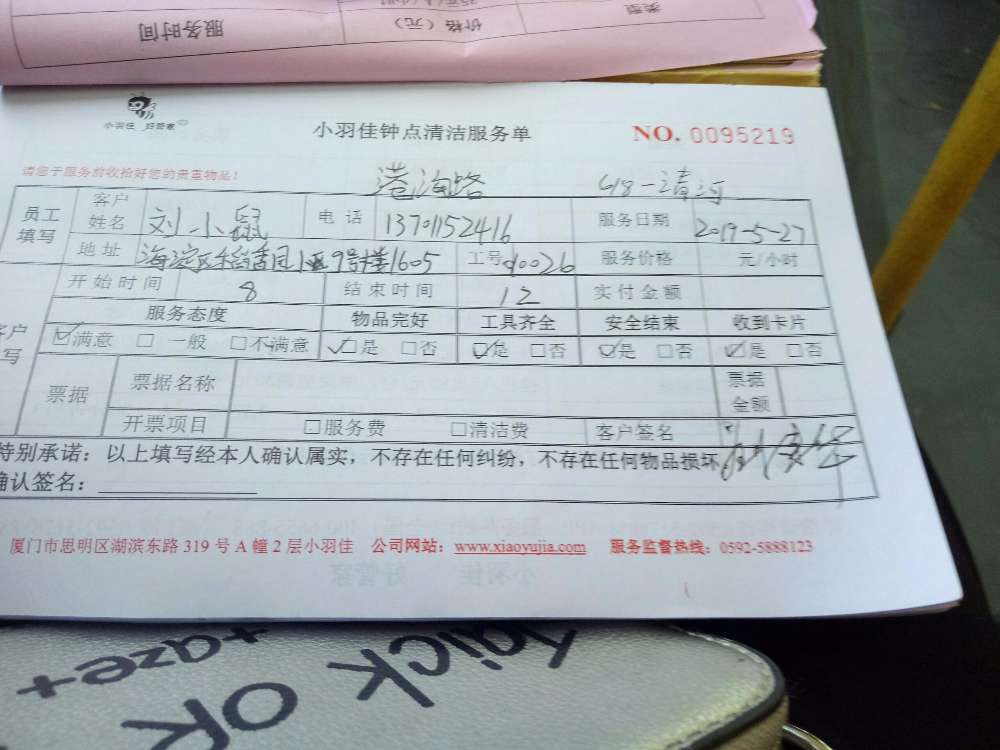 服务时间 价格(元) 类型
小羽佳 好管家
小羽佳钟点清洁服务单 NO. 0095219
请您于服务前收拾好您的贵重物品!
港沟路 418-清河
员工填写 客户姓名 刘小鼠 电话 13701152416 服务日期 2019-5-27
地址 海淀区稻香园小区9号楼1605 工号 d0026 服务价格 元/小时
开始时间 8 结束时间 12 实付金额
服务态度 物品完好 工具齐全 安全结束 收到卡片
☑满意 □ 一般 □不满意 ☑是 □否 ☑是 □否 ☑是 □否 ☑是 □否
票据 票据名称 票据金额
开票项目 □服务费 □清洁费 客户签名
特别承诺:以上填写经本人确认属实,不存在任何纠纷,不存在任何物品损坏
确认签名:
厦门市思明区湖滨东路 319 号 A 幢 2 层小羽佳 公司网站:www.xiaoyujia.com 服务监督热线:0592-5888123